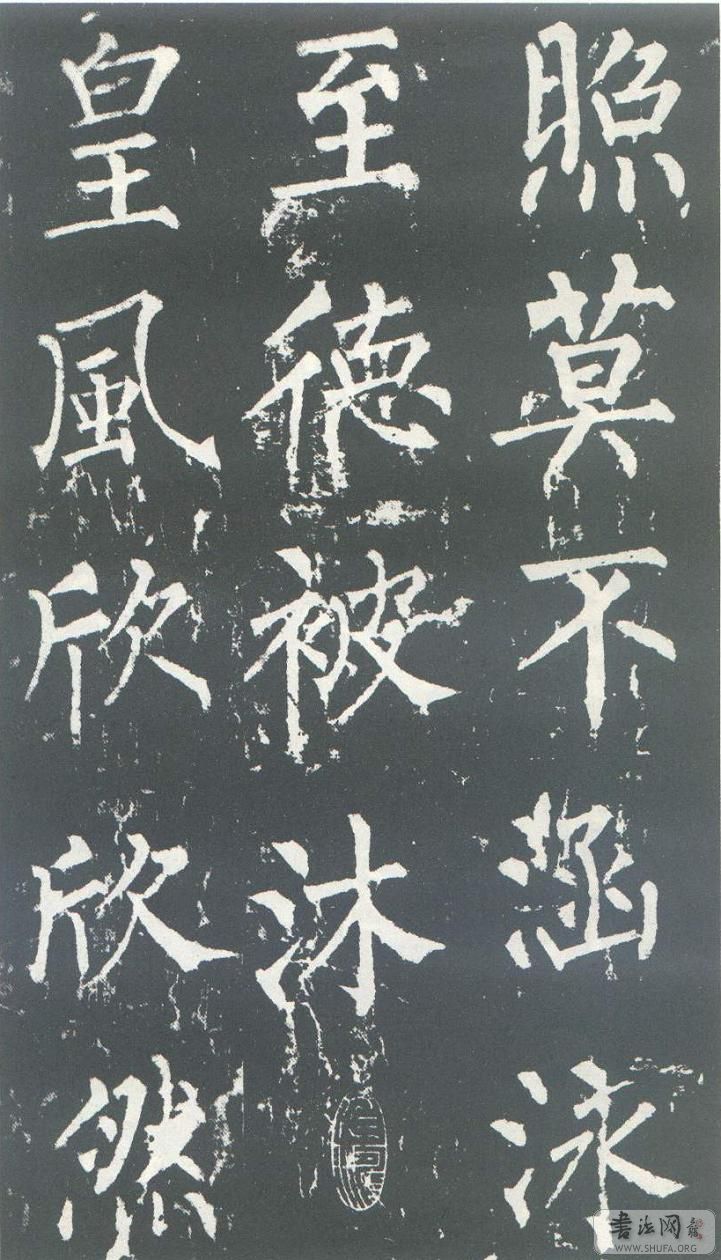 照莫不涵泳
至德被沐
皇風欣欣然
書法網
WWW.SHUFA.ORG